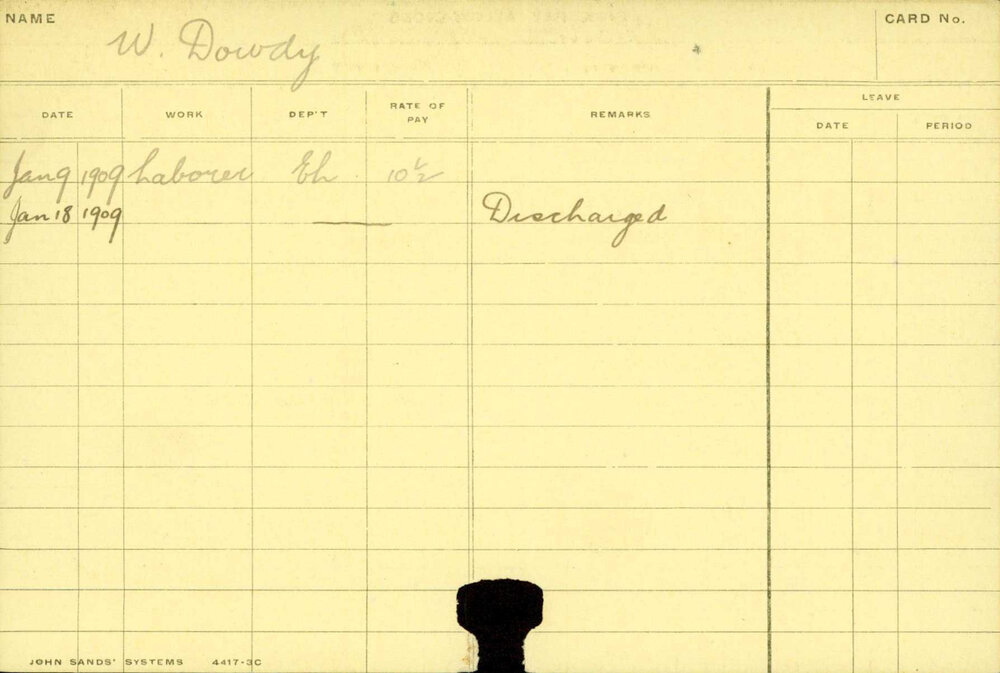 NAME W. Dowdy CARD No.
DATE WORK DEP'T RATE OF PAY REMARKS LEAVE
DATE PERIOD
Jan 9 1909 Laborer Eh 10½
Jan 18 1909 Discharged
JOHN SANDS' SYSTEMS 4417-3C